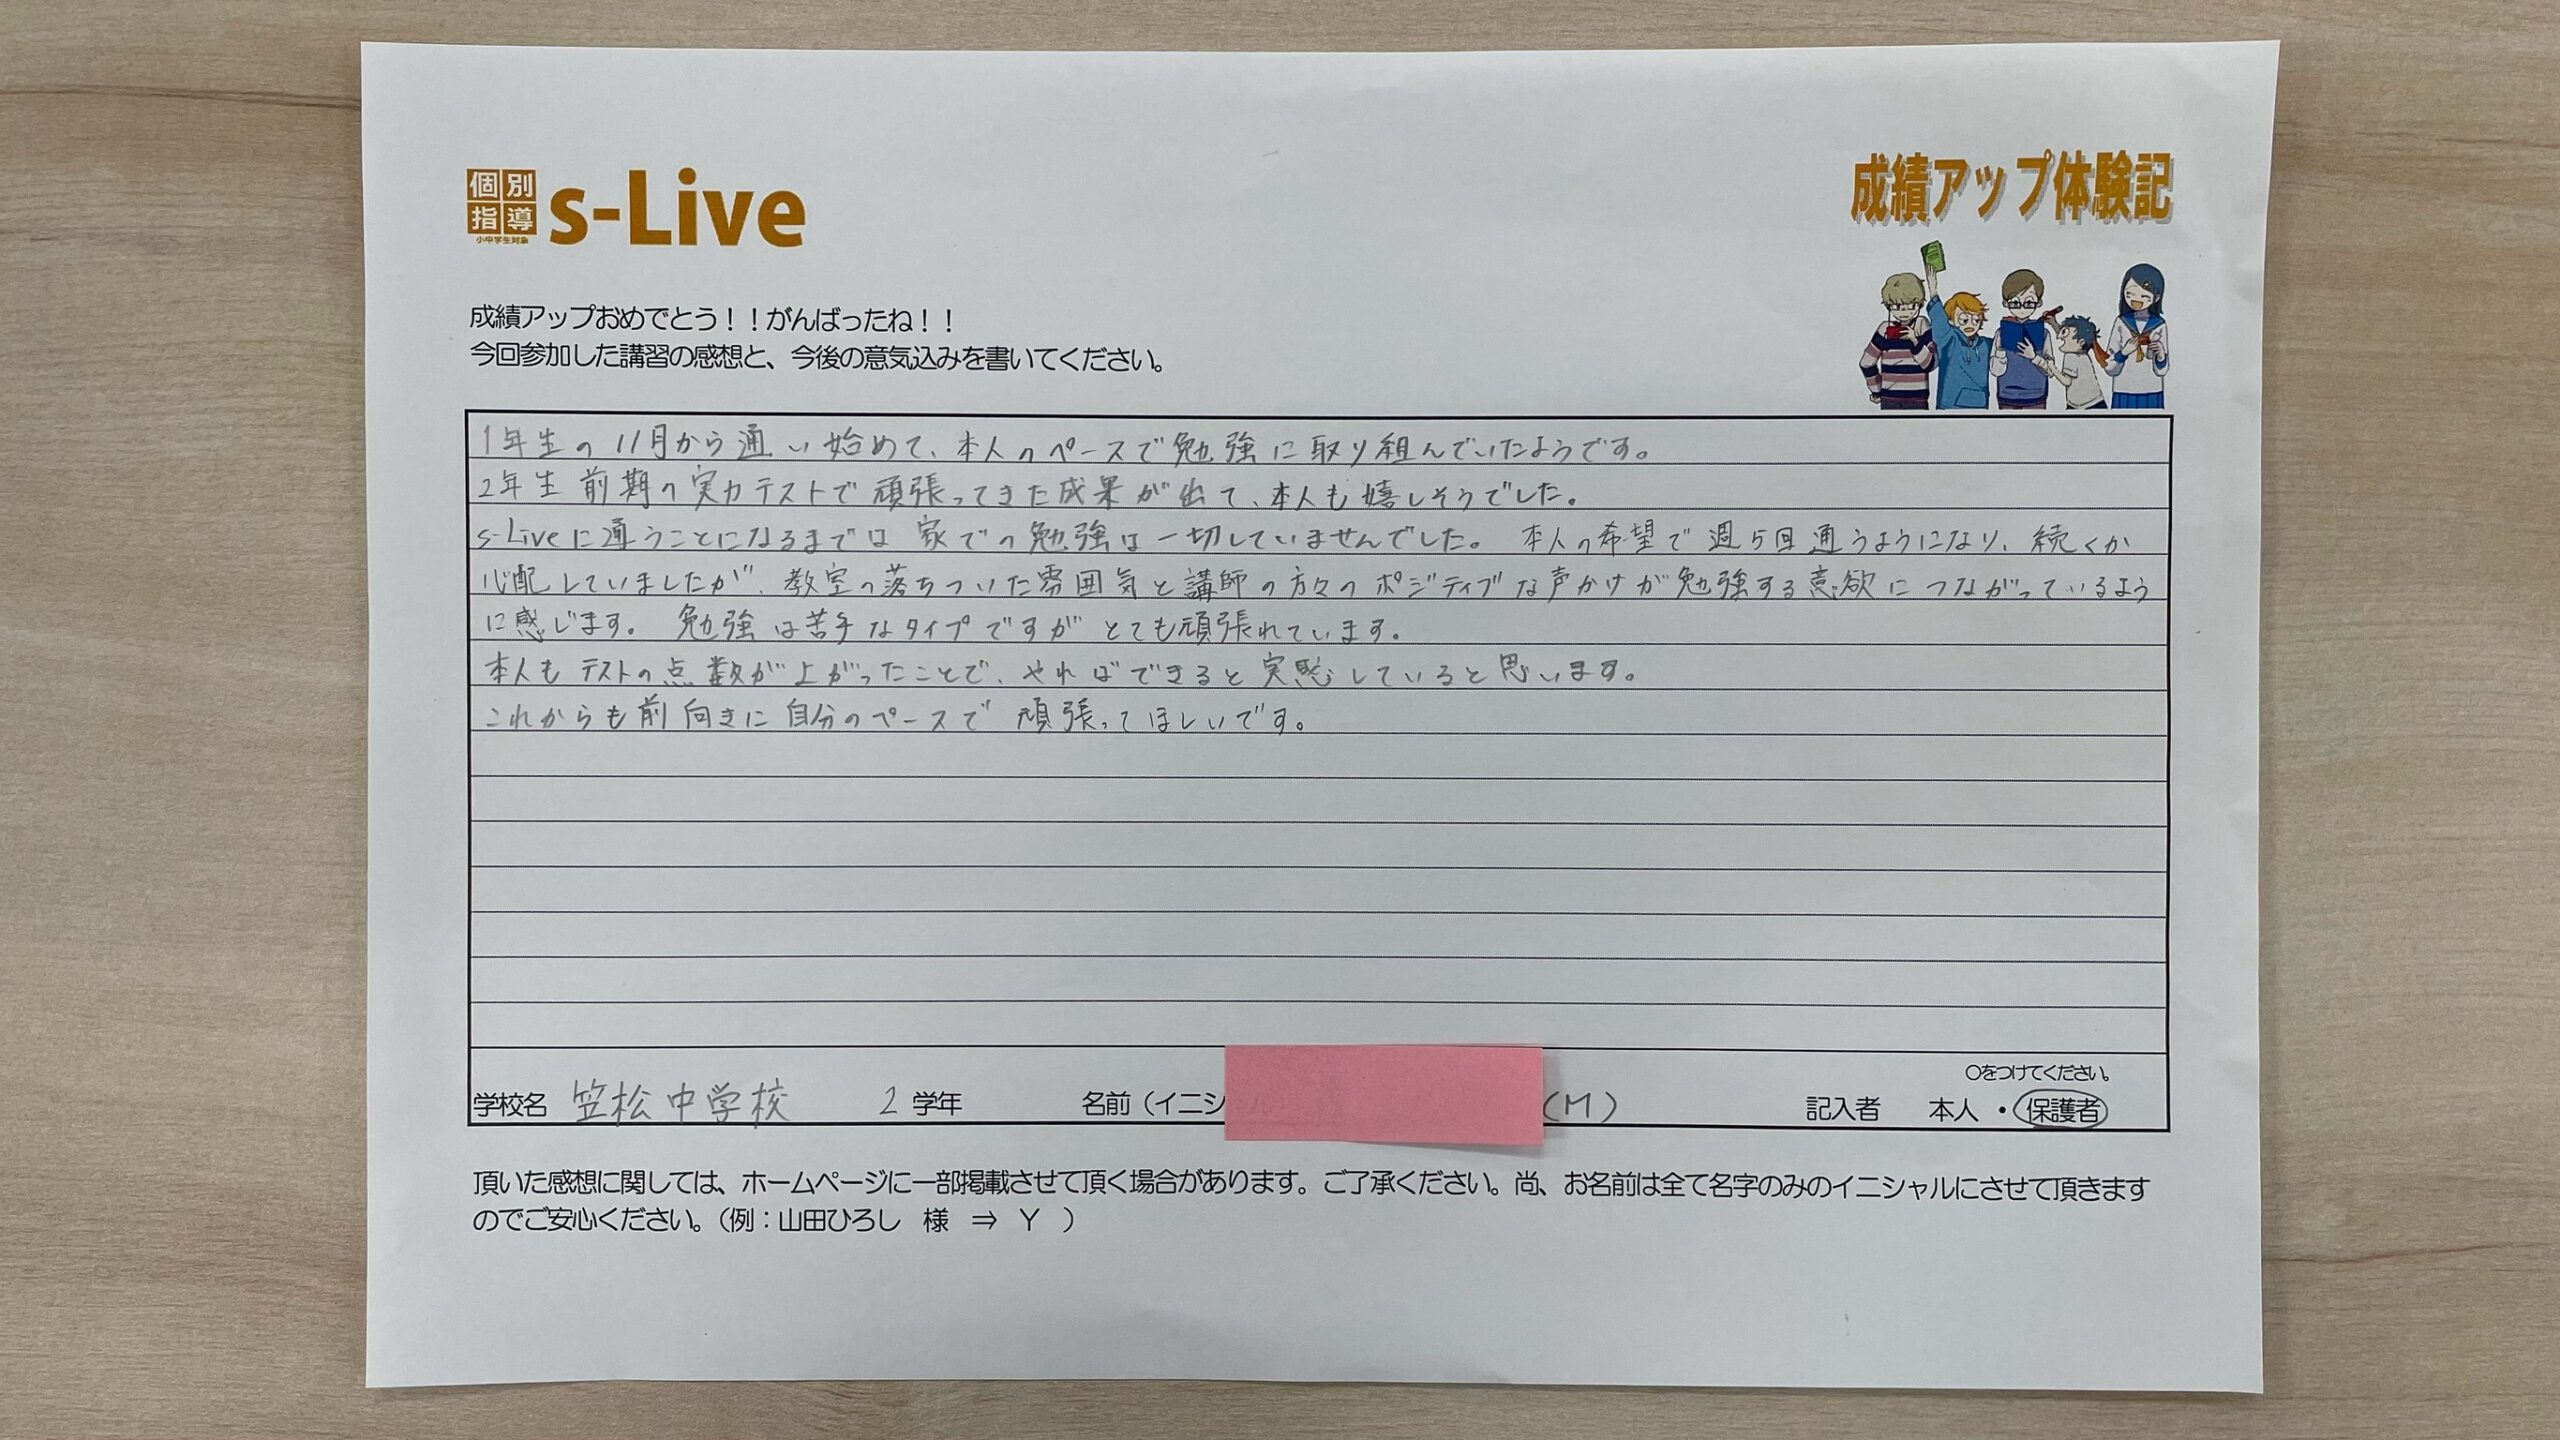 個別指導
小中学生対象
s-Live
成績アップ体験記
成績アップおめでとう！！がんばったね！！
今回参加した講習の感想と、今後の意気込みを書いてください。
1年生の11月から通い始めて、本人のペースで勉強に取り組んでいたようです。
2年生前期の実力テストで頑張ってきた成果が出て、本人も嬉しそうでした。
s-Liveに通うことになるまでは家での勉強は一切していませんでした。本人の希望で週5回通うようになり、続くか
心配していましたが、教室の落ちついた雰囲気と講師の方々のポジティブな声かけが勉強する意欲につながっているよう
に感じます。勉強は苦手なタイプですがとても頑張れています。
本人もテストの点数が上がったことで、やればできると実感していると思います。
これからも前向きに自分のペースで頑張ってほしいです。
○をつけてください。
学校名 笠松中学校 2 学年 名前（イニシ (M) 記入者 本人・保護者
頂いた感想に関しては、ホームページに一部掲載させて頂く場合があります。ご了承ください。尚、お名前は全て名字のみのイニシャルにさせて頂きます
のでご安心ください。（例：山田ひろし 様 ⇒ Y ）